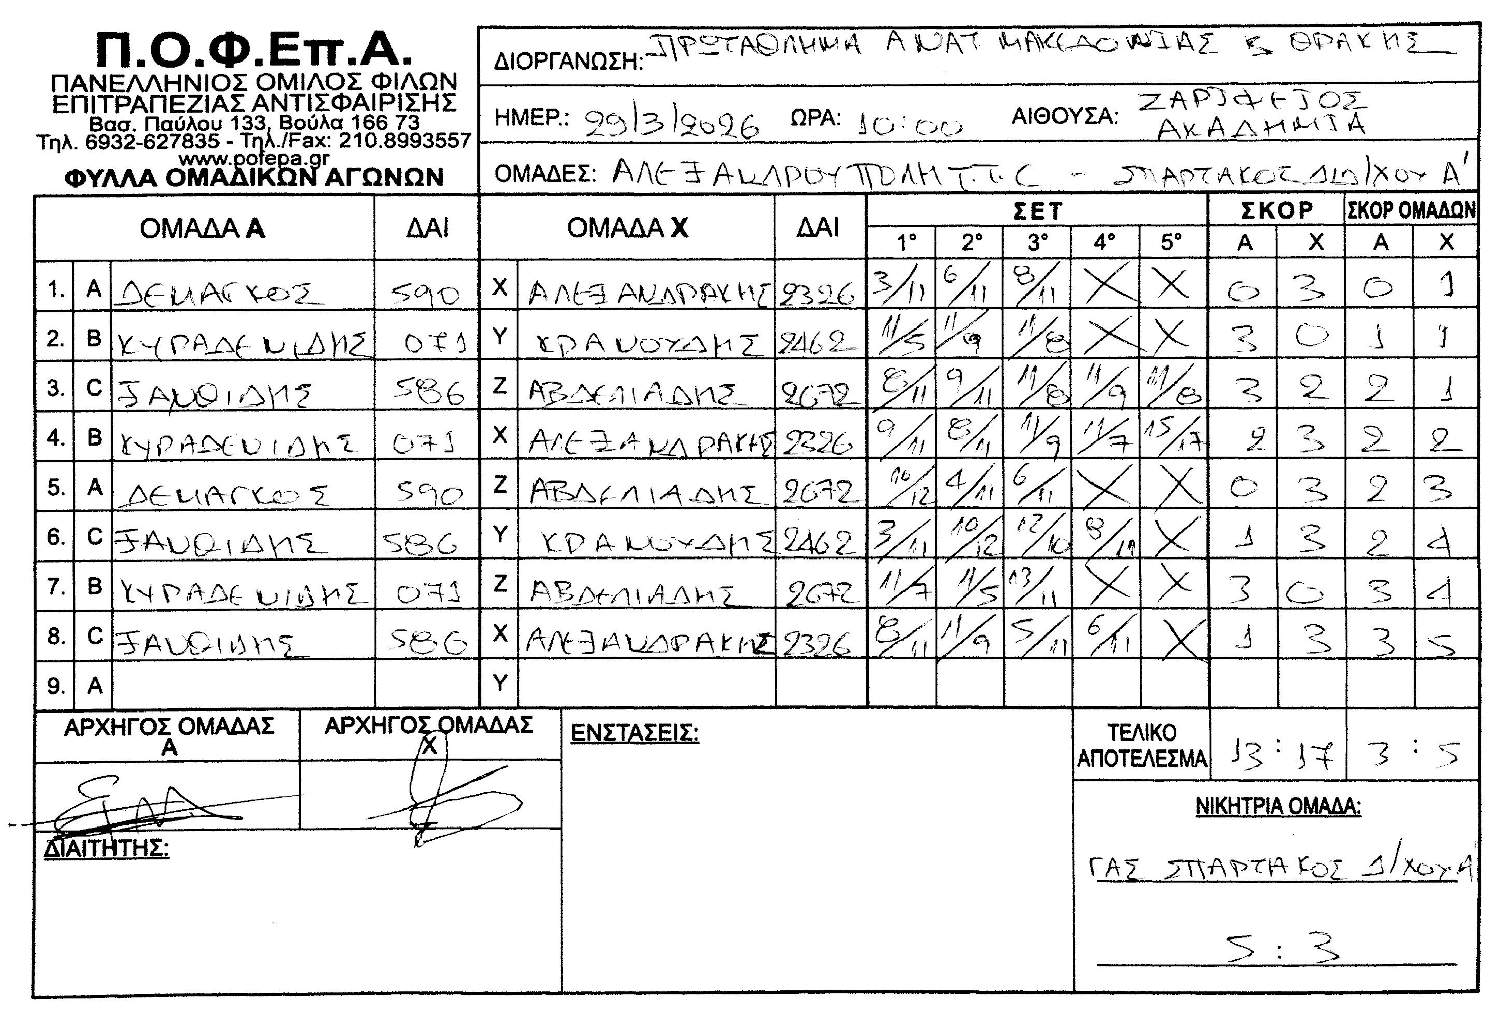 Π.Ο.Φ.Επ.Α.
ΠΑΝΕΛΛΗΝΙΟΣ ΟΜΙΛΟΣ ΦΙΛΩΝ
ΕΠΙΤΡΑΠΕΖΙΑΣ ΑΝΤΙΣΦΑΙΡΙΣΗΣ
Βασ. Παύλου 133, Βούλα 166 73
Τηλ. 6932-627835 - Τηλ./Fax: 210.8993557
www.pofepa.gr
ΦΥΛΛΑ ΟΜΑΔΙΚΩΝ ΑΓΩΝΩΝ
ΔΙΟΡΓΑΝΩΣΗ: ΠΡΩΤΑΘΛΗΜΑ ΑΝΑΤ ΜΑΚΕΔΟΝΙΑΣ & ΘΡΑΚΗΣ
ΗΜΕΡ.: 29/3/2026 ΩΡΑ: 10:00 ΑΙΘΟΥΣΑ: ΖΑΡΙΦΕΙΟΣ ΑΚΑΔΗΜΙΑ
ΟΜΑΔΕΣ: ΑΛΕΞΑΝΔΡΟΥΠΟΛΗ T.T.C - ΣΠΑΡΤΑΚΟΣ ΔΙΔ/ΧΟΥ Α'
ΟΜΑΔΑ Α ΔΑΙ ΟΜΑΔΑ Χ ΔΑΙ ΣΕΤ ΣΚΟΡ ΣΚΟΡ ΟΜΑΔΩΝ
1° 2° 3° 4° 5° Α Χ Α Χ
1. A ΔΕΜΑΓΚΟΣ 590 X ΑΛΕΞΑΝΔΡΑΚΗΣ 2326 3/11 6/11 8/11 X X 0 3 0 1
2. B ΚΥΡΑΔΕΝΙΔΗΣ 071 Y ΚΡΑΝΟΥΔΗΣ 2462 11/5 11/9 11/8 X X 3 0 1 1
3. C ΞΑΝΘΙΔΗΣ 586 Z ΑΒΔΕΛΙΑΔΗΣ 2672 8/11 9/11 11/8 11/9 11/8 3 2 2 1
4. B ΚΥΡΑΔΕΝΙΔΗΣ 071 X ΑΛΕΞΑΝΔΡΑΚΗΣ 2326 9/11 8/11 11/9 11/7 15/17 2 3 2 2
5. A ΔΕΜΑΓΚΟΣ 590 Z ΑΒΔΕΛΙΑΔΗΣ 2672 10/12 4/11 6/11 X X 0 3 2 3
6. C ΞΑΝΘΙΔΗΣ 586 Y ΚΡΑΝΟΥΔΗΣ 2462 3/11 10/12 12/10 8/11 X 1 3 2 4
7. B ΚΥΡΑΔΕΝΙΔΗΣ 071 Z ΑΒΔΕΛΙΑΔΗΣ 2672 11/7 11/5 13/11 X X 3 0 3 4
8. C ΞΑΝΘΙΔΗΣ 586 X ΑΛΕΞΑΝΔΡΑΚΗΣ 2326 8/11 11/9 5/11 6/11 X 1 3 3 5
9. A Y
ΑΡΧΗΓΟΣ ΟΜΑΔΑΣ Α
ΑΡΧΗΓΟΣ ΟΜΑΔΑΣ Χ
ΕΝΣΤΑΣΕΙΣ:
ΤΕΛΙΚΟ ΑΠΟΤΕΛΕΣΜΑ 13:17 3:5
ΝΙΚΗΤΡΙΑ ΟΜΑΔΑ:
ΔΙΑΙΤΗΤΗΣ:
ΓΑΣ ΣΠΑΡΤΑΚΟΣ Δ/ΧΟΥ Α
5:3